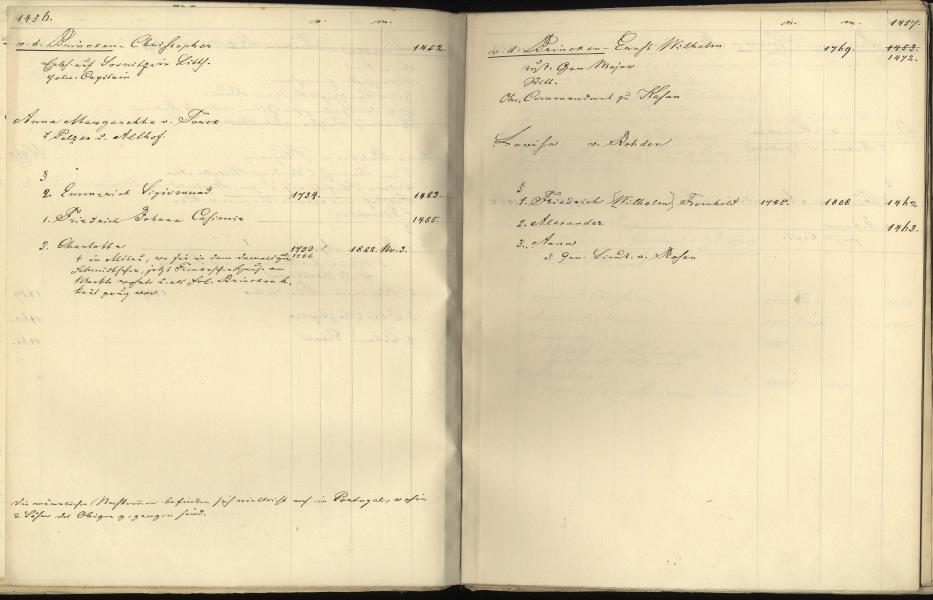 1456. n. m.
v. d. Brincken - Christopher 1452.
Capitain
Anna Margaretha v. Torck
a. Pelzen u. Allhof.
§
2. Emmerich Sigismund 1734. 1483.
1. Friedrich Johann Casimir 1485.
3. Charlotta 1733 1822 Nv. 3.
† in Mitau, wo sie in dem damaligen 1766
Schmidtschen, jetzt Haus am
Markt wohnte u. als Frl. Brincken
war
Die männlichen Nachkommen befinden sich vielleicht noch in Portugal, wohin
2 Söhne des Obigen gegangen sind.
n. m. 1457.
v. d. Brincken - Ernst Wilhelm 1769. 1453.
russ. Gen. Major 1472.
Ritt.
Ober Commandant zu Kasan
Lovisa v. Rohden
§
1. Friedrich (Wilhelm) Fromhold 1745. 1808 1462
2. Alexander 1463.
3. Anna
Gen. Lieut. v. Rosen